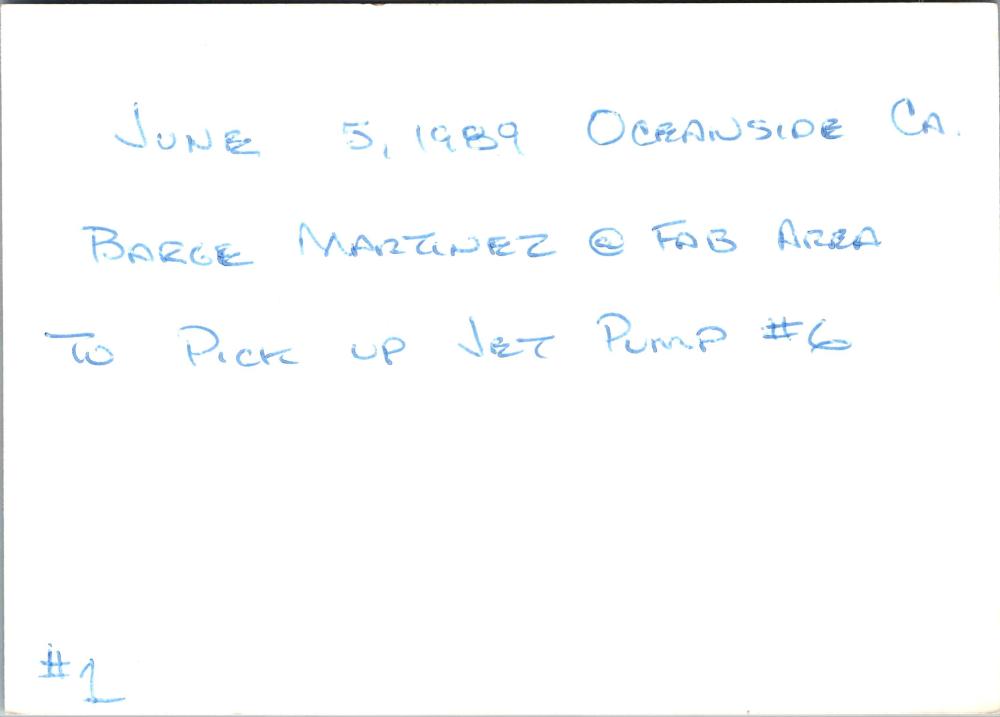 JUNE 5, 1989 OCEANSIDE CA.
BARGE MARTINEZ @ FAB AREA
TO PICK UP JET PUMP #6
#1